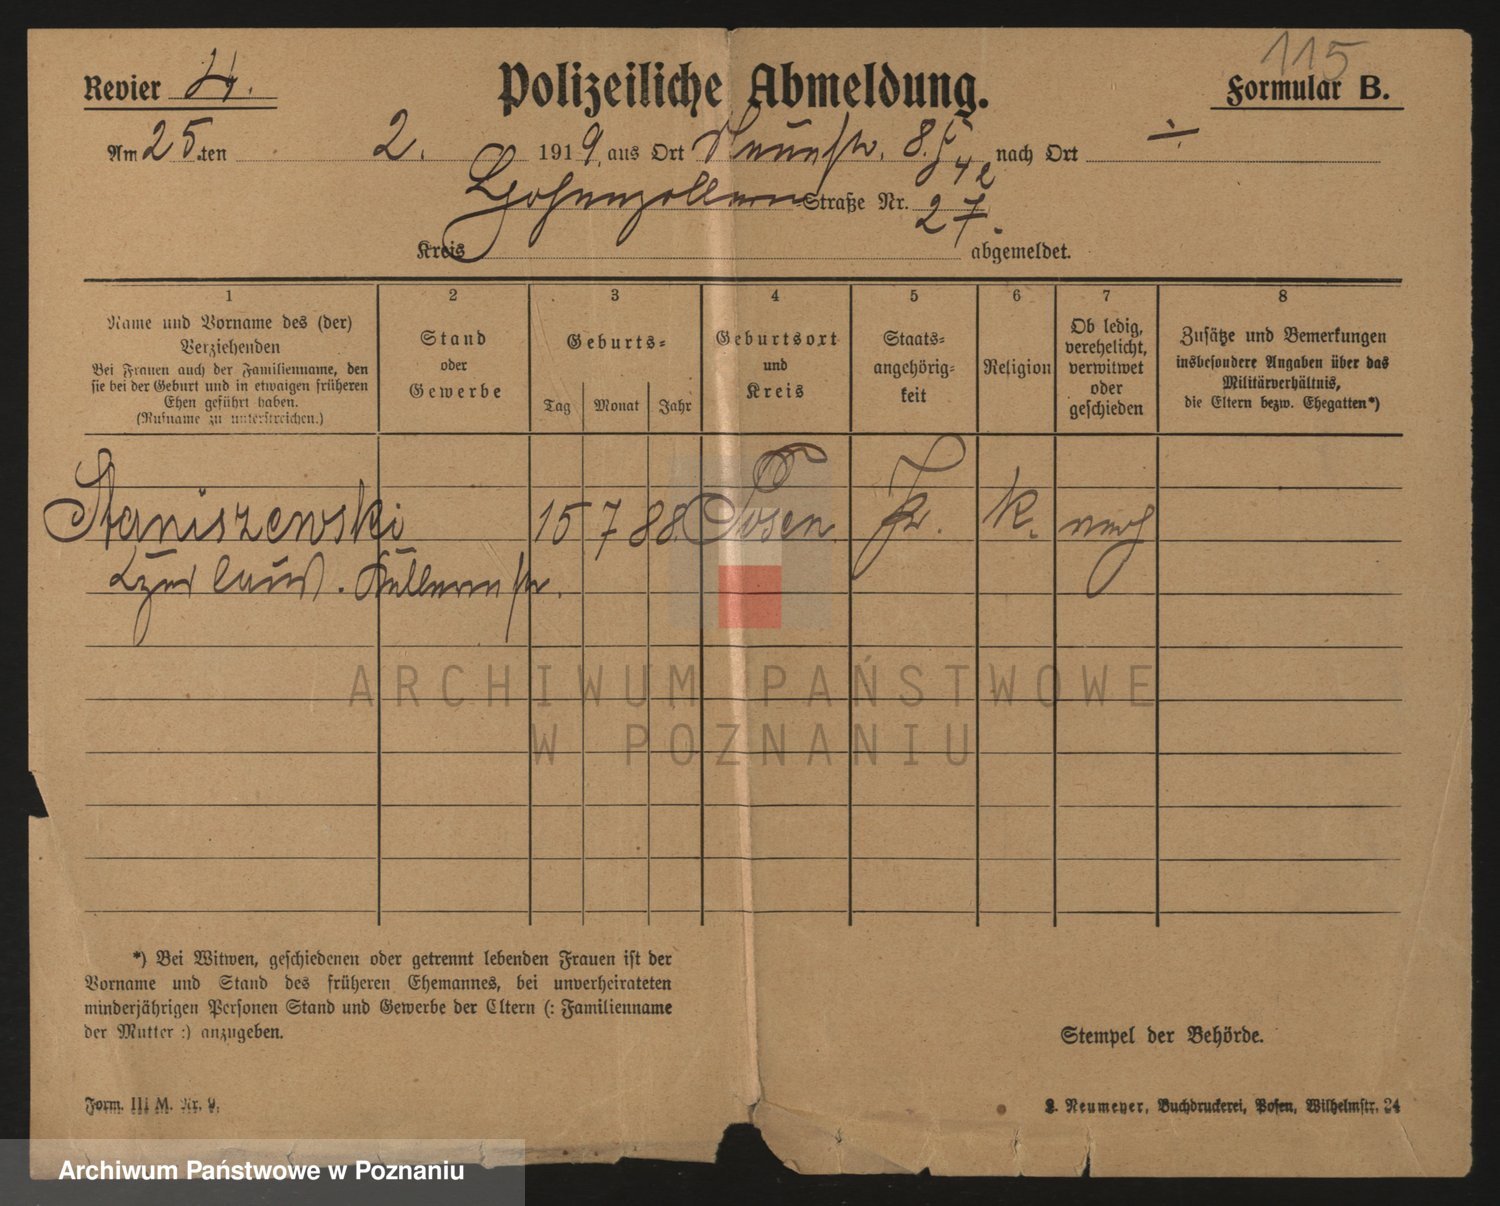 115
Revier 4.
Polizeiliche Abmeldung.
Formular B.
Am 25.ten 2. 1919, aus Ort nach Ort ÷
Hohenzollern Straße Nr. 27.
Kreis abgemeldet.
1 2 3 4 5 6 7 8
Name und Vorname des (der)
Verziehenden
Bei Frauen auch der Familienname, den
sie bei der Geburt und in etwaigen früheren
Ehen geführt haben.
(Rufname zu unterstreichen.)
Stand
oder
Gewerbe
Geburts-
Tag Monat Jahr
Geburtsort
und
Kreis
Staats-
angehörig-
keit
Religion
Ob ledig,
verehelicht,
verwitwet
oder
geschieden
Zusätze und Bemerkungen
insbesondere Angaben über das
Militärverhältnis,
die Eltern bezw. Ehegatten*)
Staniszewski 15 7 88. Posen. Pr. k. verh
ARCHIWUM PAŃSTWOWE
W POZNANIU
*) Bei Witwen, geschiedenen oder getrennt lebenden Frauen ist der
Vorname und Stand des früheren Ehemannes, bei unverheirateten
minderjährigen Personen Stand und Gewerbe der Eltern (: Familienname
der Mutter :) anzugeben.
Stempel der Behörde.
Form. III M. Nr. 9.
Neumeyer, Buchdruckerei, Posen, Wilhelmstr. 24
Archiwum Państwowe w Poznaniu